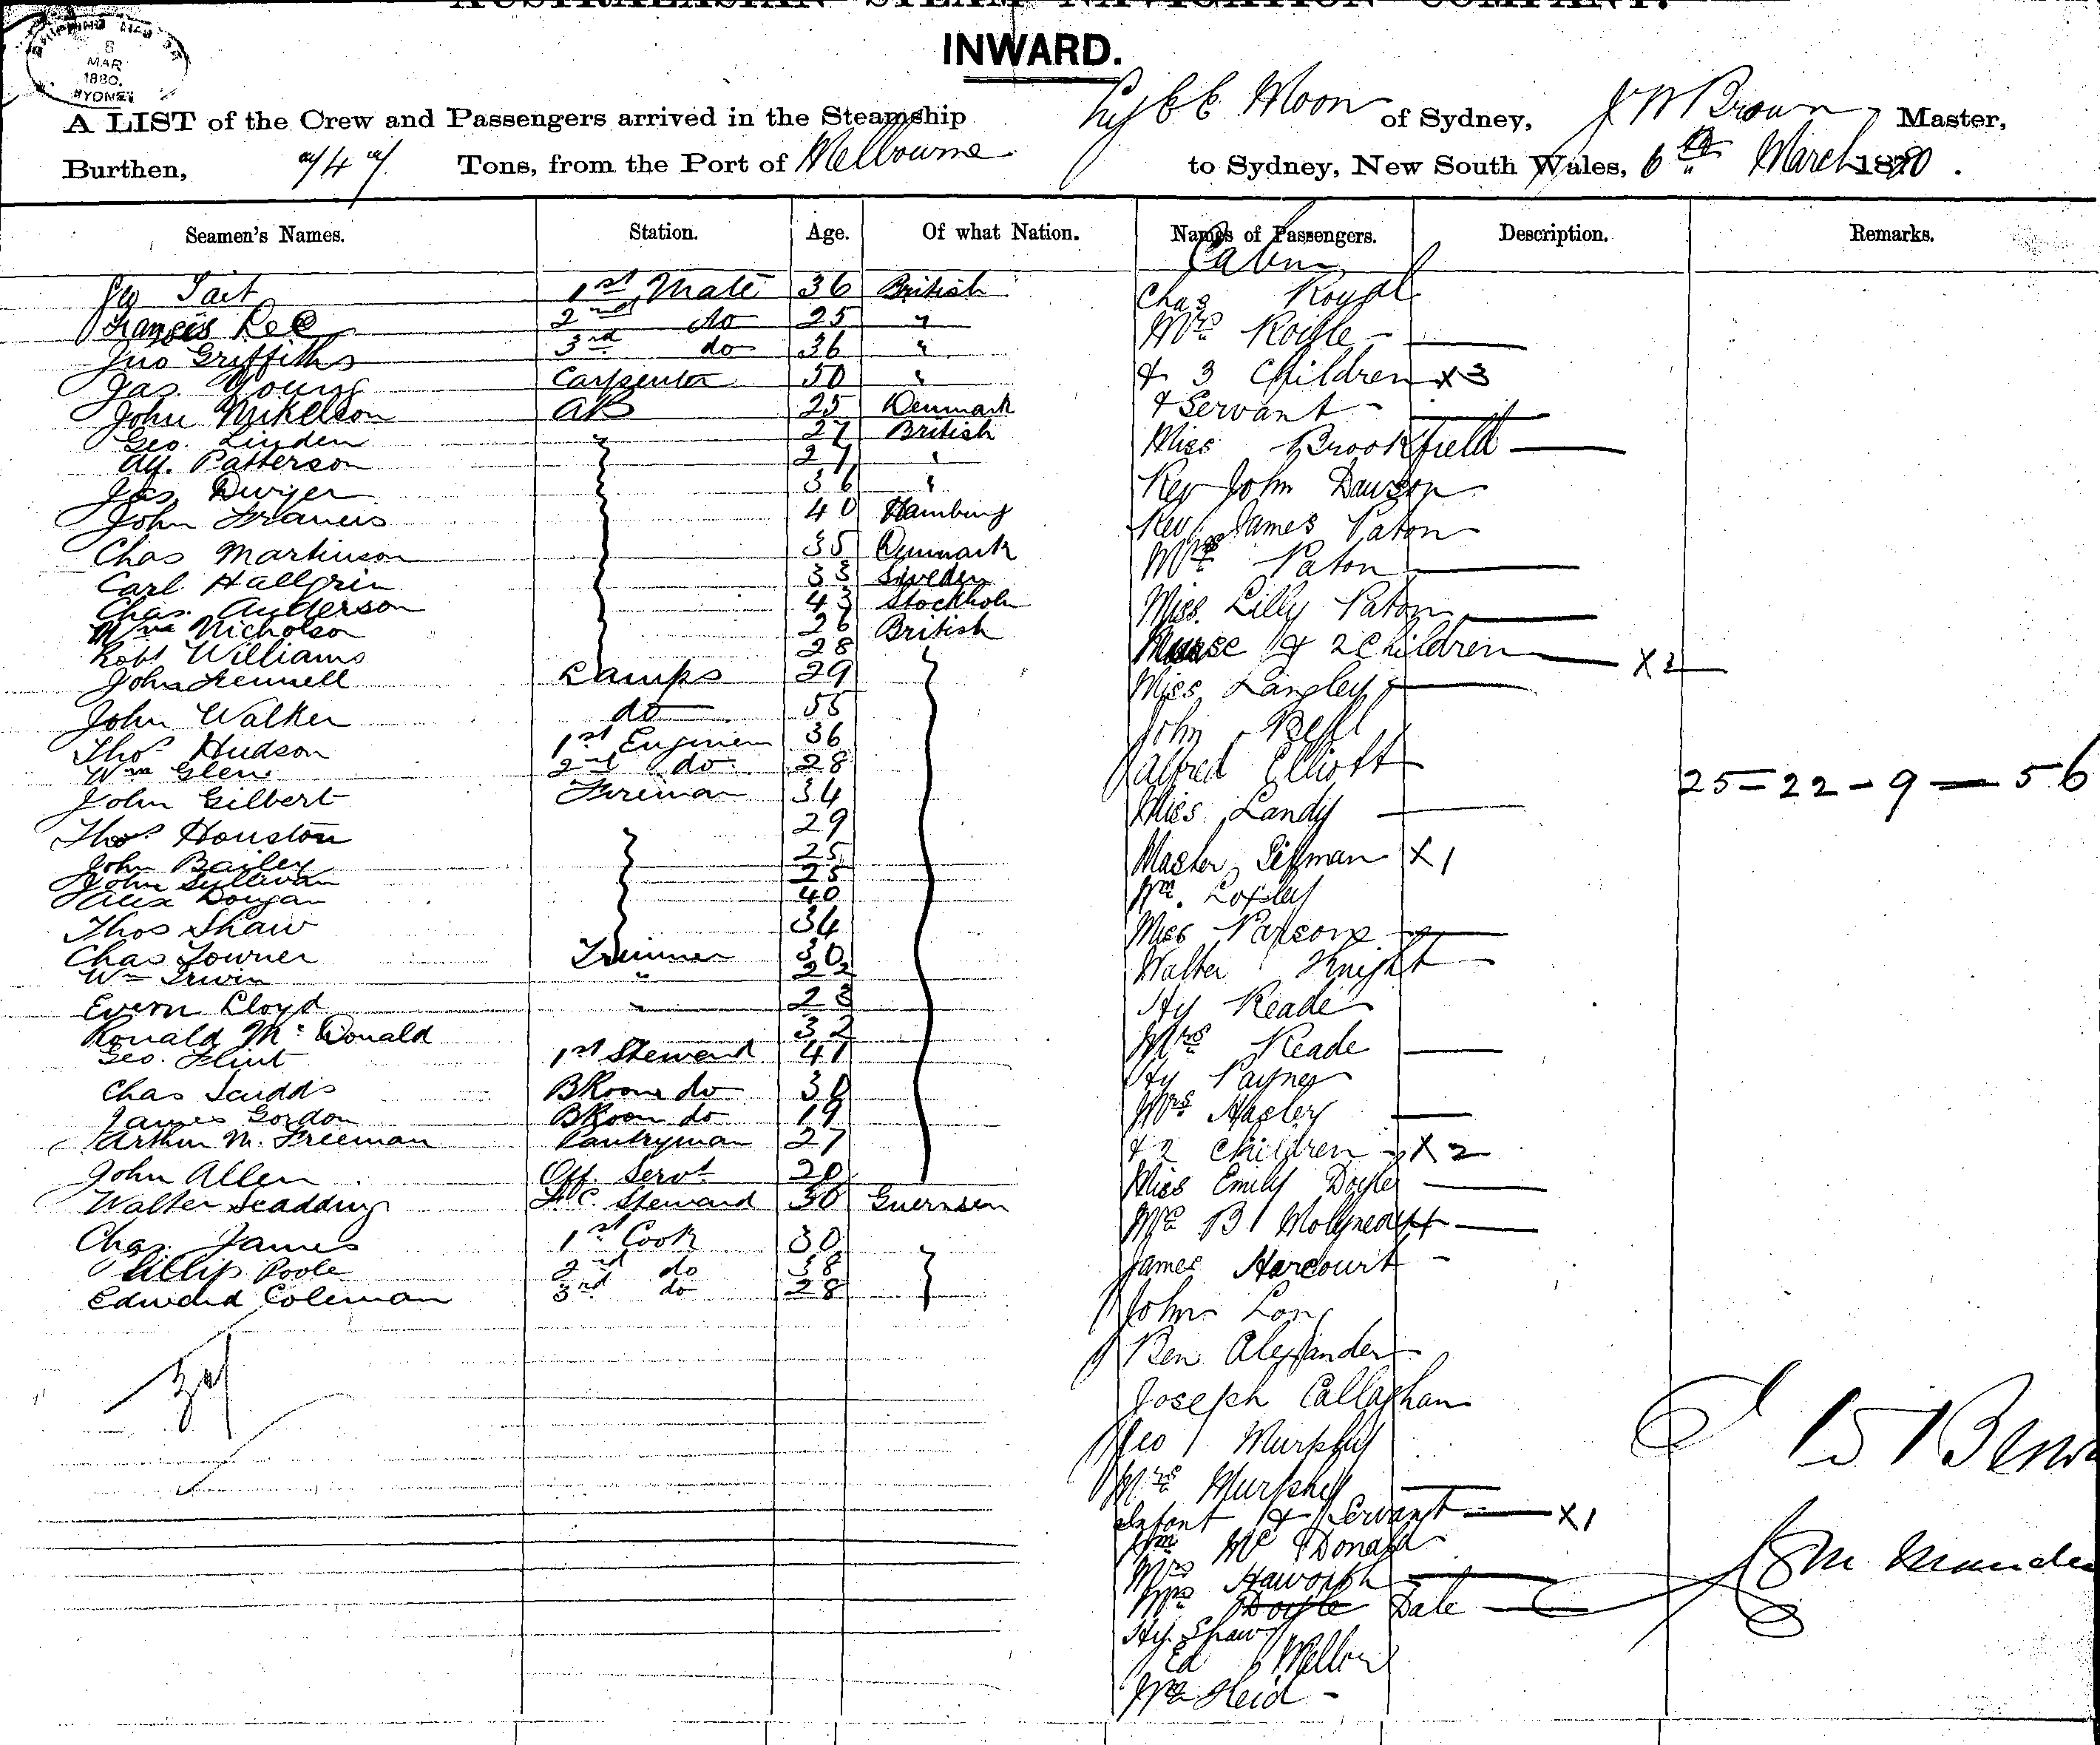 AUSTRALASIAN STEAM NAVIGATION COMPANY.
INWARD.
8
MAR
1880.
SYDNEY
A LIST of the Crew and Passengers arrived in the Steamship Moon of Sydney, J W Brown Master,
Burthen, Tons, from the Port of Melbourne to Sydney, New South Wales, 6th March 1880.
Seamen's Names. Station. Age. Of what Nation. Names of Passengers. Description. Remarks.
Cabin
Tait 1st Mate 36 British
Francis Lee 2nd do 25 "
Jno Griffiths 3rd do 36 "
Jas. Young Carpenter 50 "
John Nikelson AB 25 Denmark
Geo. Linden 27 British
Patterson 27 "
Jas Dwyer 36 "
John Francis 40 Hamburg
Chas Martinson 35 Denmark
Carl Hallgrin 33 Sweden
Chas. Anderson 43 Stockholm
Wm Nicholson 26 British
Robt Williams 28
John Fennell Lamps 29
John Walker do 55
Thos Hudson 1st Engineer 36
Wm Glen 2nd do 28
John Gilbert Fireman 34
Thos Houston 29
John Bailey 25
John Sullivan 25
Alex Dougan 40
Thos Shaw 34
Chas Towner Trimmer 30
Wm Irwin " 22
Evern Lloyd " 28
Ronald McDonald 32
Geo. Flint 1st Steward 41
Chas Scudds BRoom do 30
James Gordon BRoom do 19
Arthur M. Freeman Pantryman 27
John Allen Off. Servt 20
Walter Scadding F.C. Steward 36 Guernsen
Chas. James 1st Cook 30
Phillip Poole 2nd do 38
Edward Coleman 3rd do 28
Chas Royal
Mrs Royle
& 3 Children x 3
& Servant
Miss Brookfield
Rev John Dawson
Rev James Paton
Mrs Paton
Miss. Lilly Paton
Nurse & 2 Children x 2
Miss Langley
John Bell
Alfred Elliott
Miss Landy
Master x 1
Wm. Loxley
Miss Parsons
Walter Knight
Hy Reade
Mrs Reade
Hy Payne
Mrs Hasler
& 2 Children x 2
Miss Emily Doyle
B Molyneaux
James Harcourt
John Long
Ben Alexander
Joseph Callaghan
Geo Murphy
Mrs Murphy
Infant & Servant x 1
Wm McDonald
Mrs Haworth
Mrs Doyle Dale
Hy. Shaw
Ed Mellon
Wm Heid
25 - 22 - 9 - 56